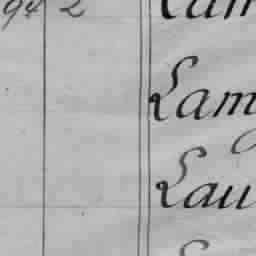 94 2 Lam
Lamp
Lau